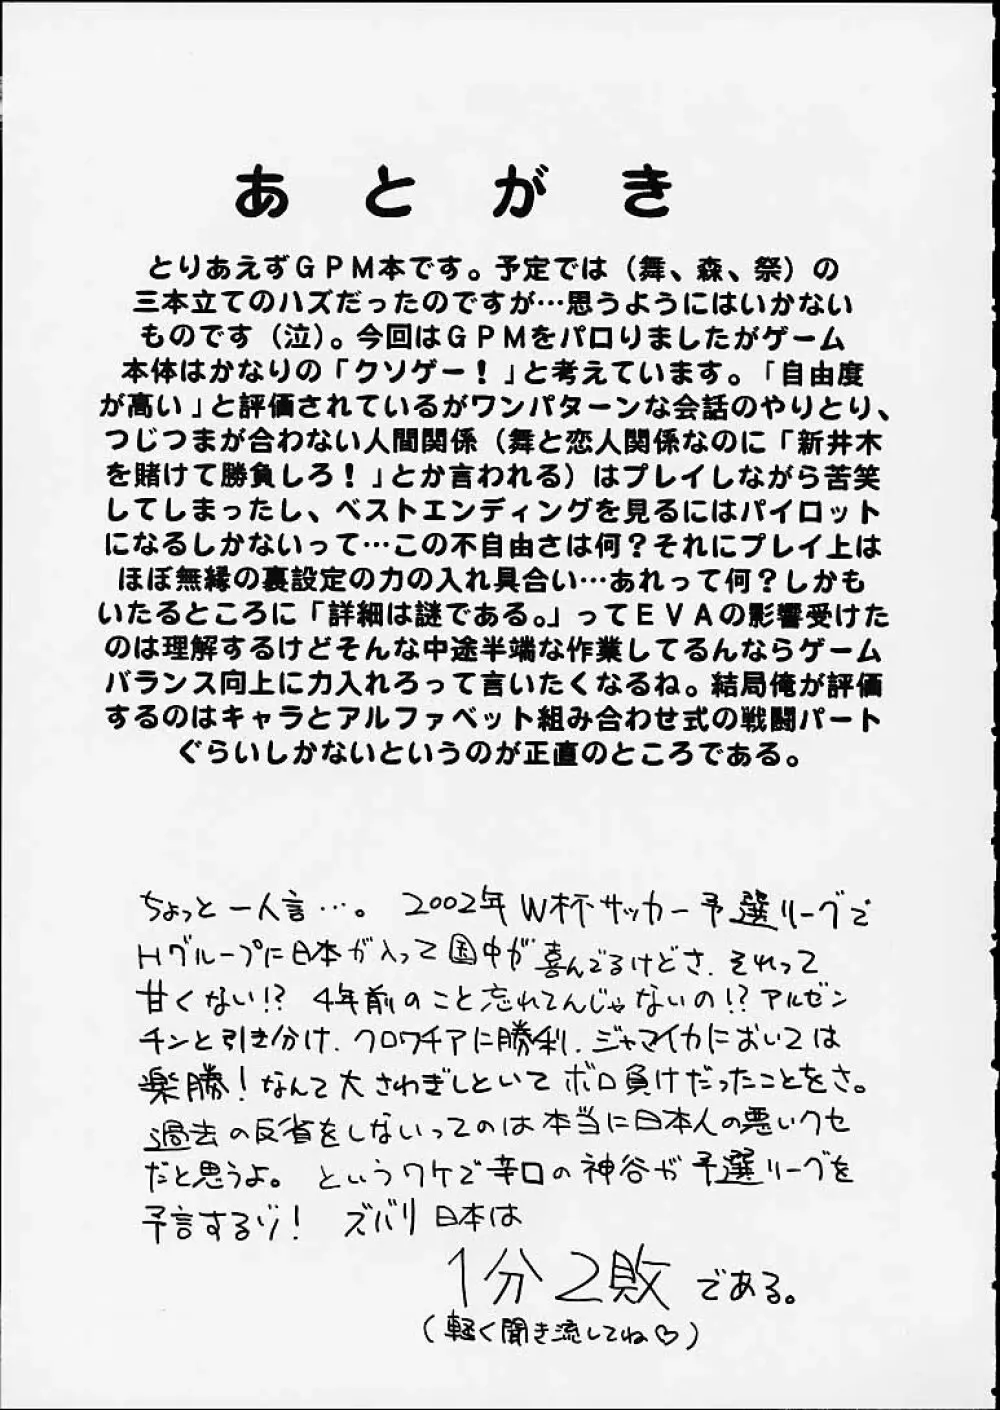 あとがき
とりあえずGPM本です。予定では(舞、森、祭)の
三本立てのハズだったのですが…思うようにはいかない
ものです(泣)。今回はGPMをパロりましたがゲーム
本体はかなりの「クソゲー!」と考えています。「自由度
が高い」と評価されているがワンパターンな会話のやりとり、
つじつまが合わない人間関係(舞と恋人関係なのに「新井木
を賭けて勝負しろ!」とか言われる)はプレイしながら苦笑
してしまったし、ベストエンディングを見るにはパイロット
になるしかないって…この不自由さは何?それにプレイ上は
ほぼ無縁の裏設定の力の入れ具合い…あれって何?しかも
いたるところに「詳細は謎である。」ってEVAの影響受けた
のは理解するけどそんな中途半端な作業してるんならゲーム
バランス向上に力入れろって言いたくなるね。結局俺が評価
するのはキャラとアルファベット組み合わせ式の戦闘パート
ぐらいしかないというのが正直のところである。
ちょっと一人言…。 2002年W杯サッカー予選リーグで
Hグループに日本が入って国中が喜んでるけどさ、それって
甘くない!? 4年前のこと忘れてんじゃないの!? アルゼン
チンと引き分け、クロワチアに勝利、ジャマイカにおいては
楽勝!なんて大さわぎしといてボロ負けだったことをさ。
過去の反省をしないってのは本当に日本人の悪いクセ
だと思うよ。 というワケで辛口の神谷が予選リーグを
予言するゾ! ズバリ日本は
1分2敗である。
(軽く聞き流してね♡)